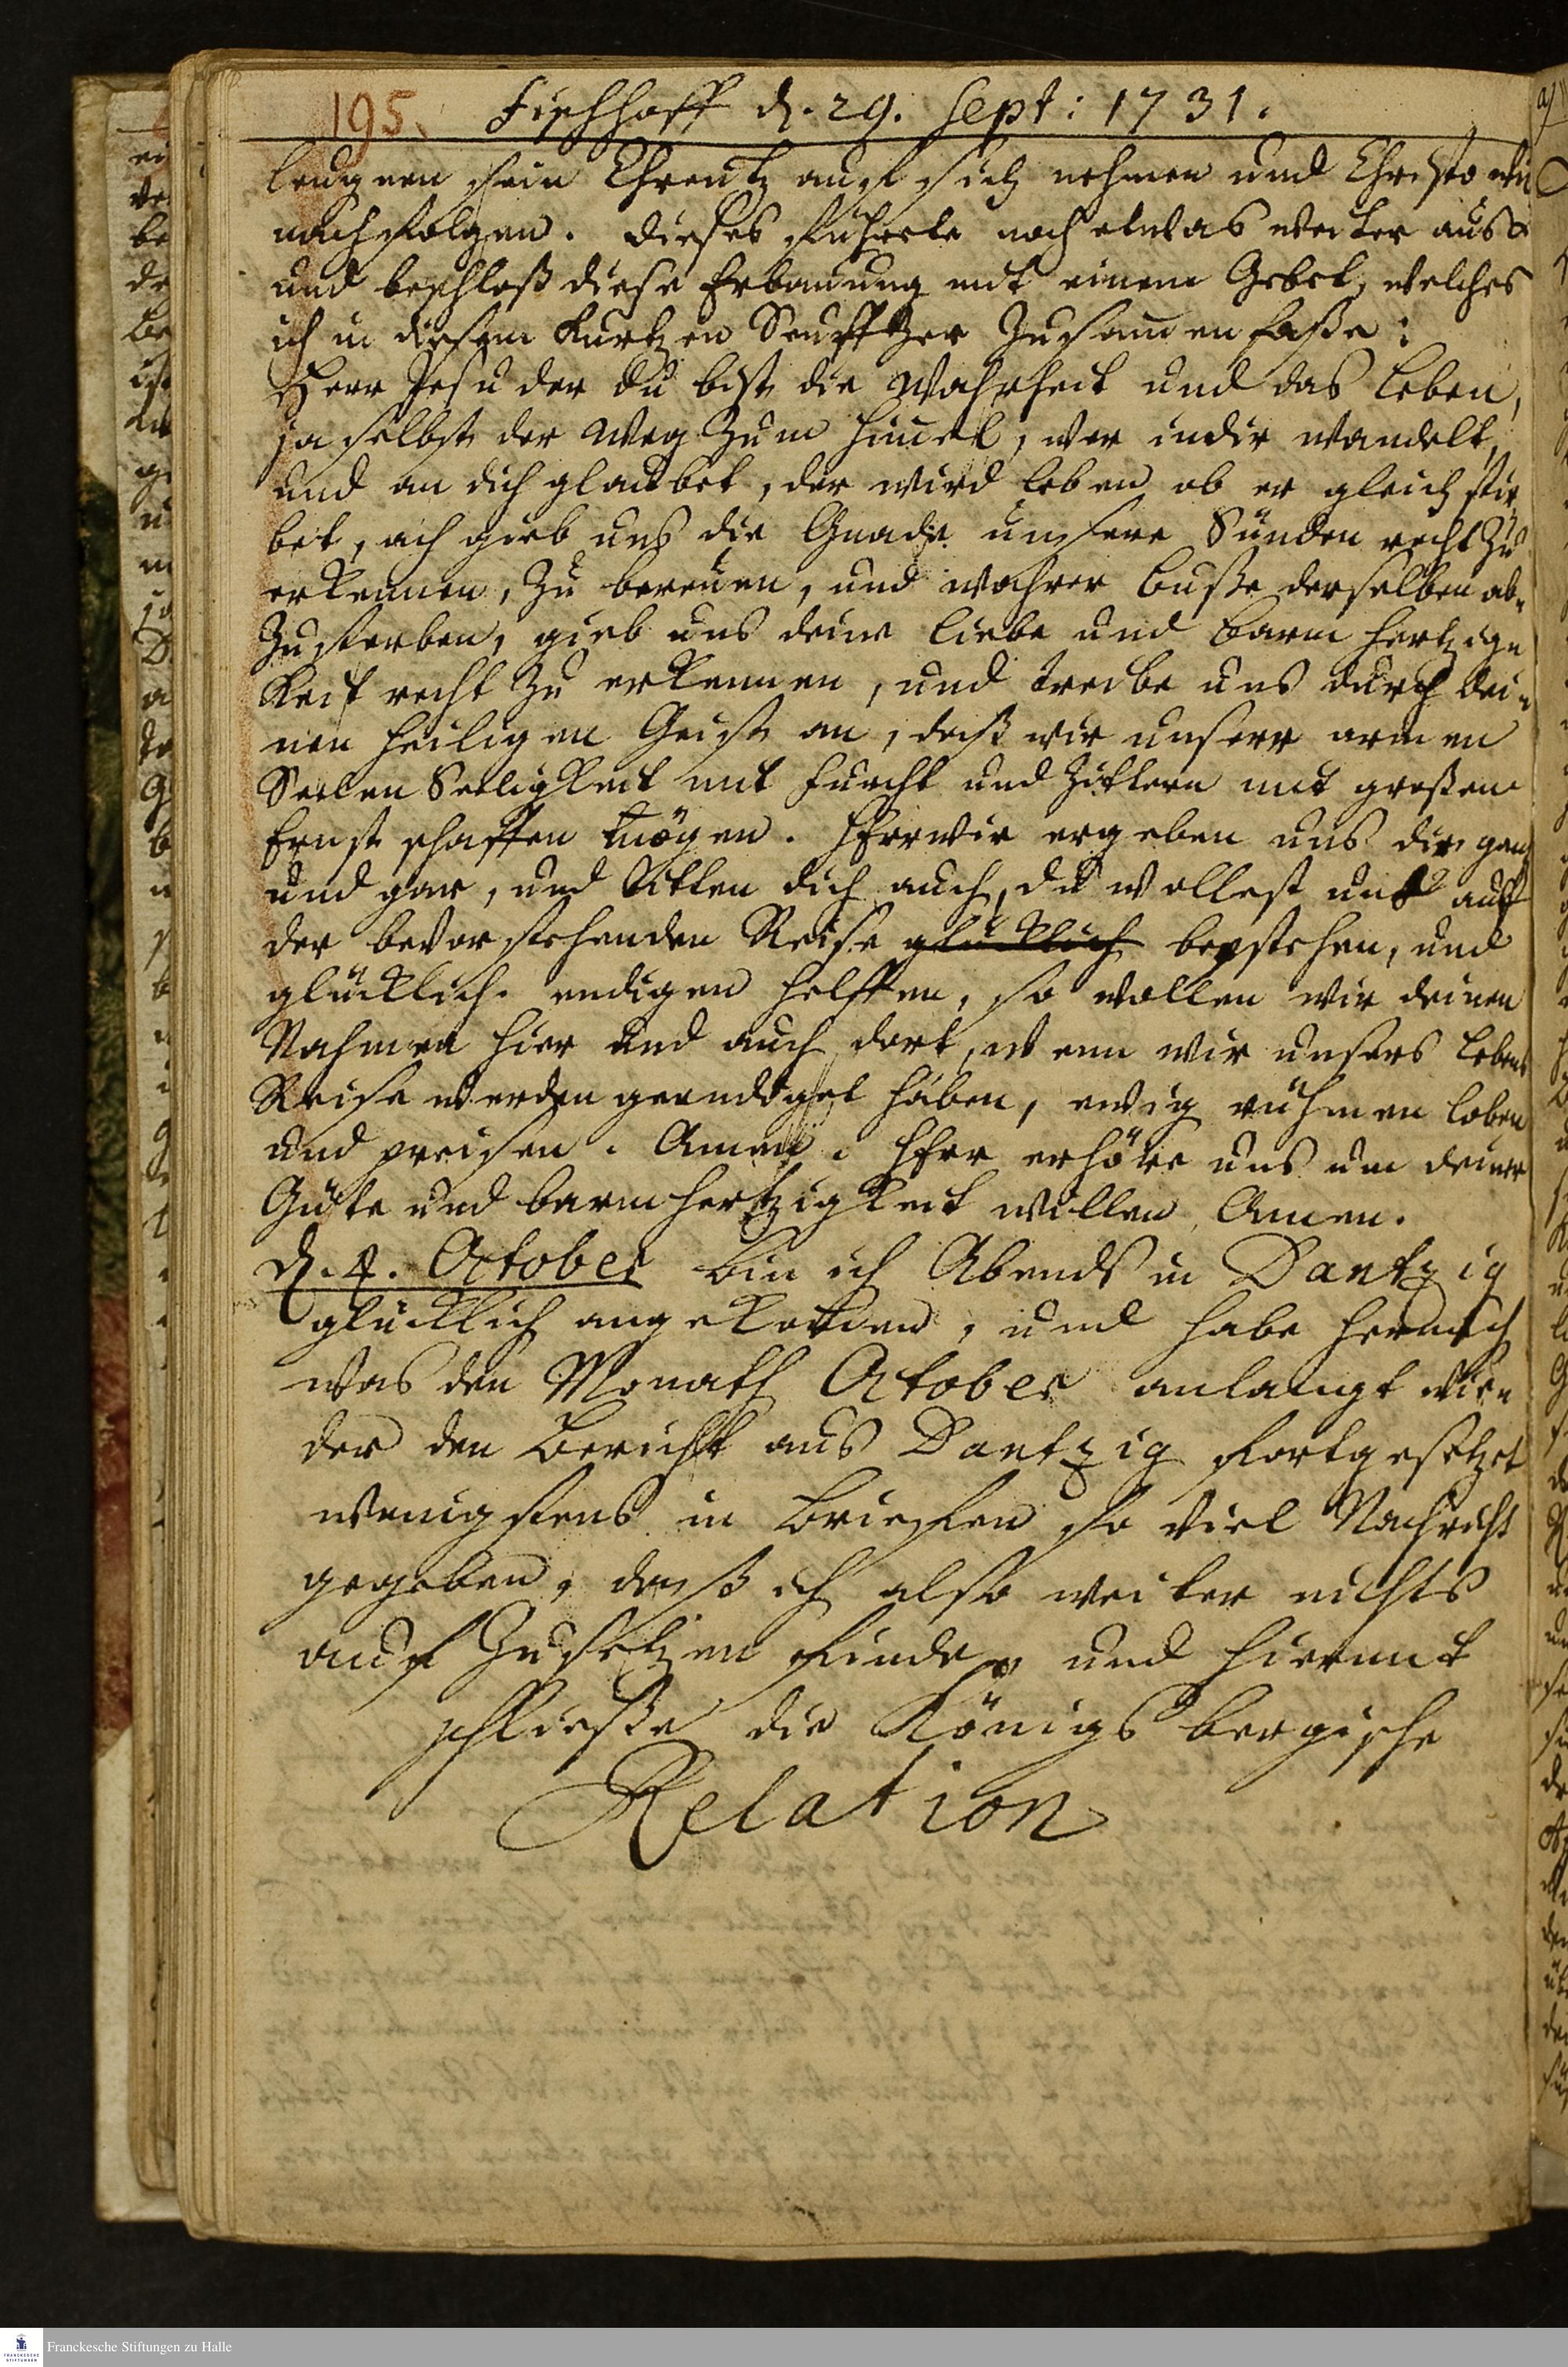 195. Fischhoff d. 29. Sept: 1731.
leugnen sein Chreutz auf sich nehmen und Christo
nachfolgen. dieses führete noch etwas weiter aus
und beschloß diese Erbauung mit einem Gebet, welches
ich in diesem kurtzen Seufftzer zusam̅en faße:
Herr Jesu der du bist die Wahrheit und das Leben,
ja selbst der Weg zum Him̅el, wer in dir wandelt,
und an dich glaubet, der wird leben ob er gleich stir
bet, ach gieb uns die Gnade unsere Sünden recht zu
erkennen, zu bereuen, und wahrer buße derselben ab-
zusterben, gieb uns deine liebe und barm hertzig-
keit recht zu erkennen, und treibe uns durch dei-
nen heiligen Geist an, daß wir unserer armen
Seelen Seeligkeit mit furcht und Zittern mit großem
Ernst schaffen mögen. Herr wir ergeben uns dir gantz
und gar, und bitten dich auch, du wollest uns auf
der bevorstehenden Reise glücklich beystehen, und
glücklich endigen helffen, so wollen wir deinen
Nahmen hier und auch dort, wenn wir unsers lebens
Reise werden geendiget haben, ewig rühmen loben
und preisen. Amen. Herr erhöre uns um deiner
Güte und barmhertzigkeit willen, Amen.
d. 4. October bin ich Abends in Dantzig
glücklich angekom̅en, und habe hernach
was den Monath October anlangt wie-
der den Bericht aus Dantzig fortgesetzet
wenigstens in Briefen so viel Nachricht
gegeben, daß ich also weiter nichts
auf zusetzen finde, und hiermit
schließe die Königsbergische
Relation
Franckesche Stiftungen zu Halle